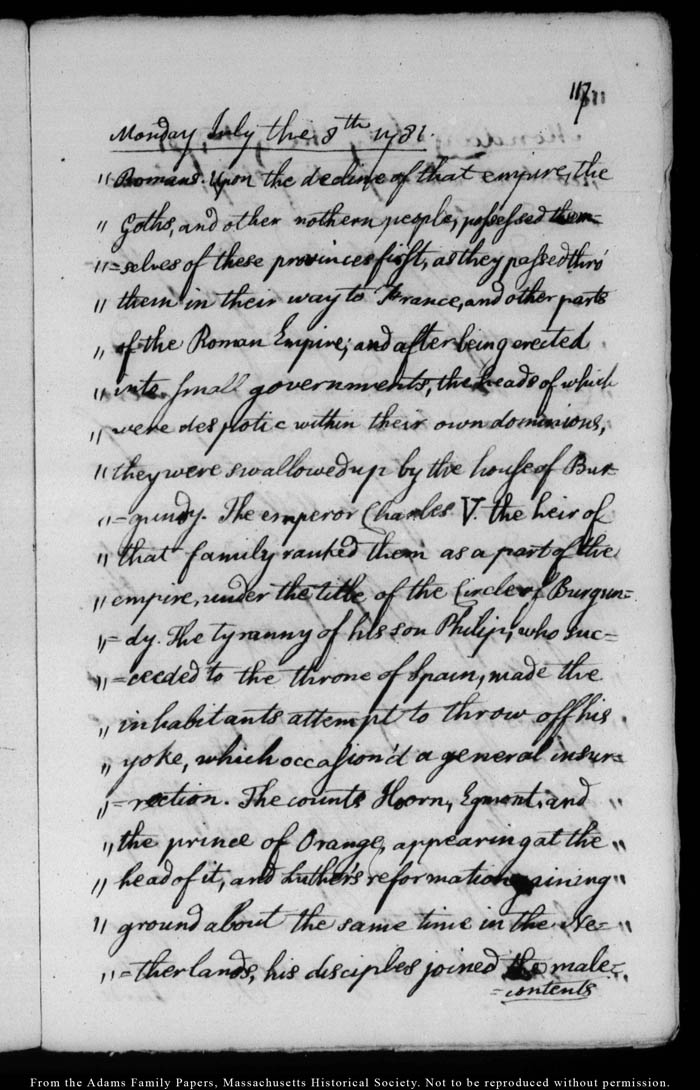 117
Monday July the 8th 1781.
" Romans. Upon the decline of that empire, the
" Goths, and other nothern people, possessed them=
" =selves of these provinces first, as they passed thro'
" them in their way to France, and other parts
" of the Roman Empire; and after being erected
" into small governments, the heads of which
" were despotic within their own dominions,
" they were swallowed up by the house of Bur-
" =gundy. The emperor Charles V. the heir of
" that family ranked them as a part of the
" empire, under the title of the Circle of Burgun=
" =dy. The tyranny of his son Philip, who suc=
" =ceeded to the throne of Spain, made the
" inhabitants attempt to throw off his
" yoke, which occasion'd a general insur=
" =rection. The counts Hoorn, Egmont, and "
" the prince of Orange, appearing at the "
" head of it, and Luther's reformation gaining "
" ground about the same time in the Ne= "
" =therlands, his disciples joined the male= "
=contents
From the Adams Family Papers, Massachusetts Historical Society. Not to be reproduced without permission.